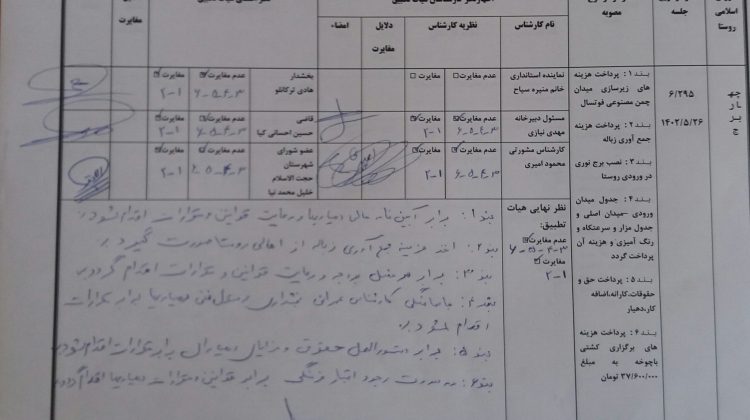 اسلامی
روستا
جلسه
مصوبه
نام کارشناس
نظریه کارشناس
دلایل
مغایرت
امضاء
مغایرت
چهاربرج
۶/۲۹۵
۱۴۰۲/۵/۲۶
بند۱: پرداخت هزینه
های زیرسازی میدان
چمن مصنوعی فوتسال
بند۲: پرداخت هزینه
جمع آوری زباله
بند۳: نصب برج نوری
در ورودی روستا
بند۴: جدول میدان
ورودی –میدان اصلی و
جدول مزار و سرعتکاه و
رنگ آمیزی و هزینه آن
پرداخت گردد
بند۵: پرداخت حق و
حقوقات،کارانه،اضافه
کار،دهیار
بند۶: پرداخت هزینه
های برگزاری کشتی
باچوخه به مبلغ
۳۷/۶۰۰/۰۰۰ تومان
نماینده استانداری
خانم منیره سیاح
عدم مغایرت
مغایرت
مسئول دبیرخانه
مهدی نیازی
عدم مغایرت
۳-۴-۵-۶
مغایرت
۱-۲
کارشناس مشورتی
محمود امیری
عدم مغایرت
۳-۴-۵-۶
مغایرت
۱-۲
بخشدار
هادی ترکانلو
عدم مغایرت
۳-۴-۵-۶
مغایرت
۱-۲
قاضی
حسین احسانی کیا
عدم مغایرت
۳-۴-۵-۶
مغایرت
۱-۲
عضو شورای
شهرستان
حجت الاسلام
خلیل محمد نیا
عدم مغایرت
۳-۴-۵-۶
مغایرت
۱-۲
نظر نهایی هیات
تطبیق:
عدم مغایرت
۳-۴-۵-۶
مغایرت
۱-۲
بند۱: برابر آیین نامه مالی دهیاریها و رعایت قوانین و مقررات اقدام شود
بند۲: اخذ هزینه جمع آوری زباله از اهالی روستا صورت گیرد
بند۳: برابر و رعایت قوانین و مقررات اقدام گردد
بند۴: با هماهنگی کارشناس عمران بخشداری و مسئول فنی دهیاریها برابر مقررات
اقدام شود
بند۵: برابر دستورالعمل حقوق و مزایای دهیاران برابر مقررات اقدام شود
بند۶: در صورت وجود اعتبار فرهنگی برابر قوانین و مقررات دهیاریها اقدام گردد